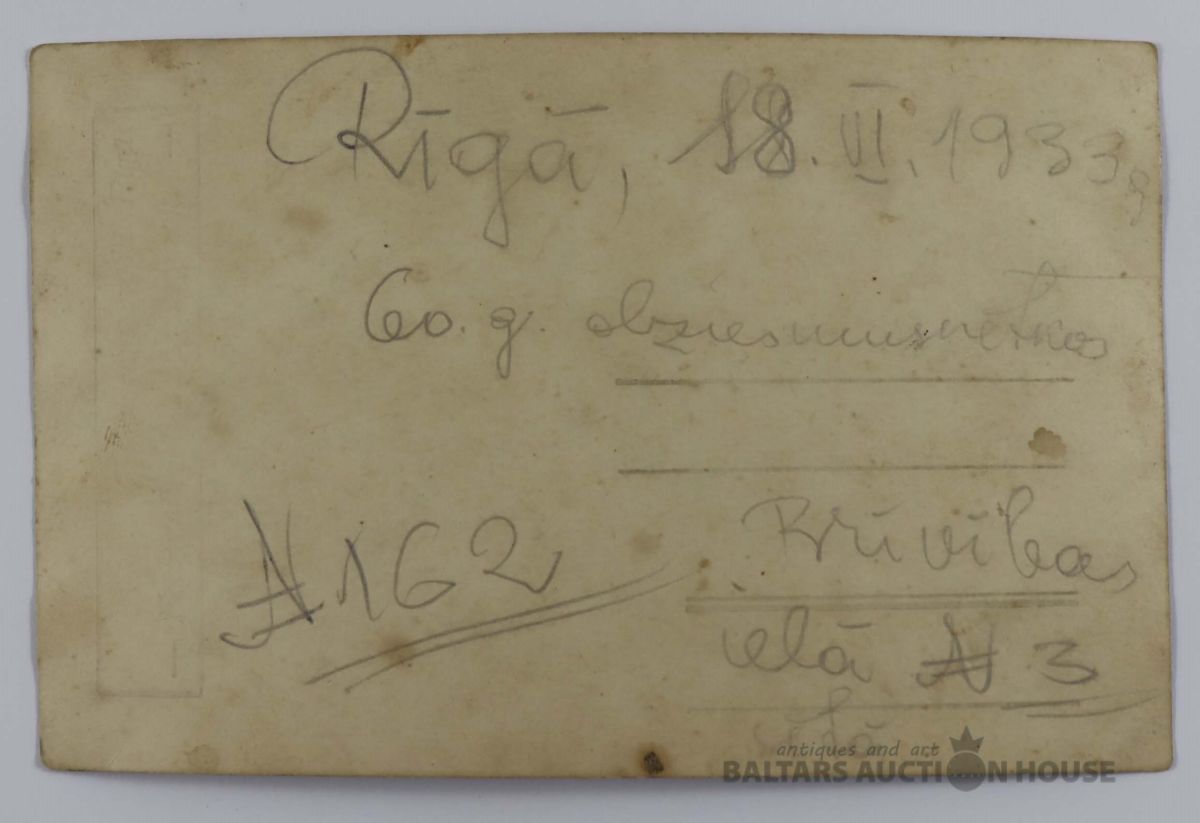 Rīgā, 18. VI. 1933 g
60. g. dziesmusvētkos
N 162
Brīvības
ielā N 3
antiques and art
BALTARS AUCTION HOUSE